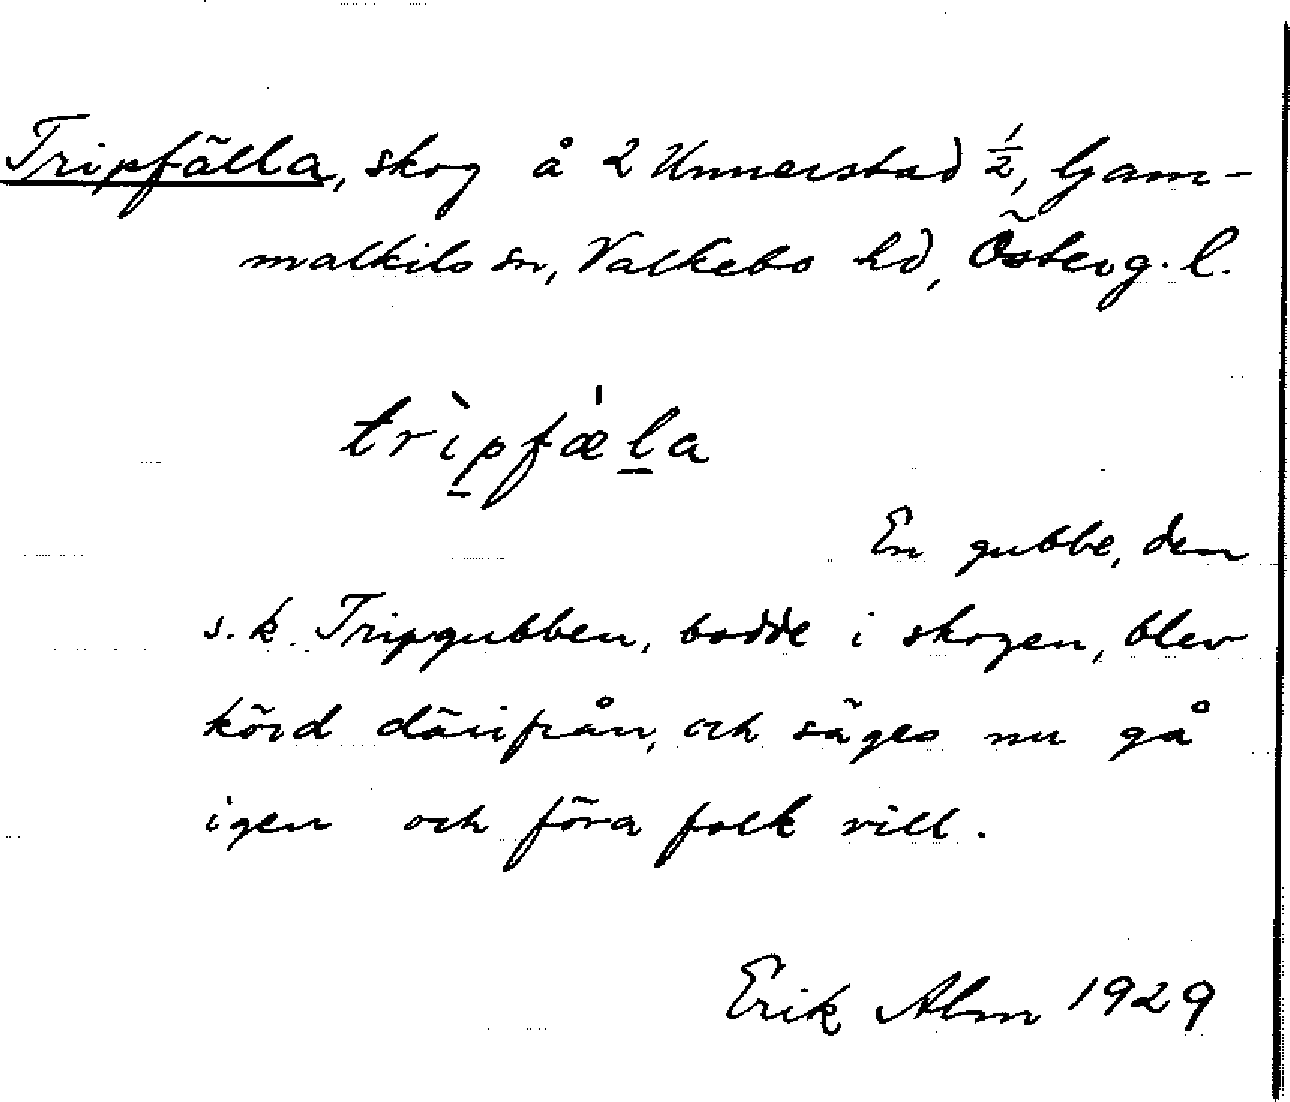 Tripfälla, skog å 2 Unnerstad 1/2, Gam-
malkils sn, Valkebo hd, Österg. l.
trìpfæ̍la
En gubbe, den
s.k. Tripgubben, bodde i skogen, blev
körd därifrån, och säges nu gå
igen och föra folk vill.
Erik Alm 1929